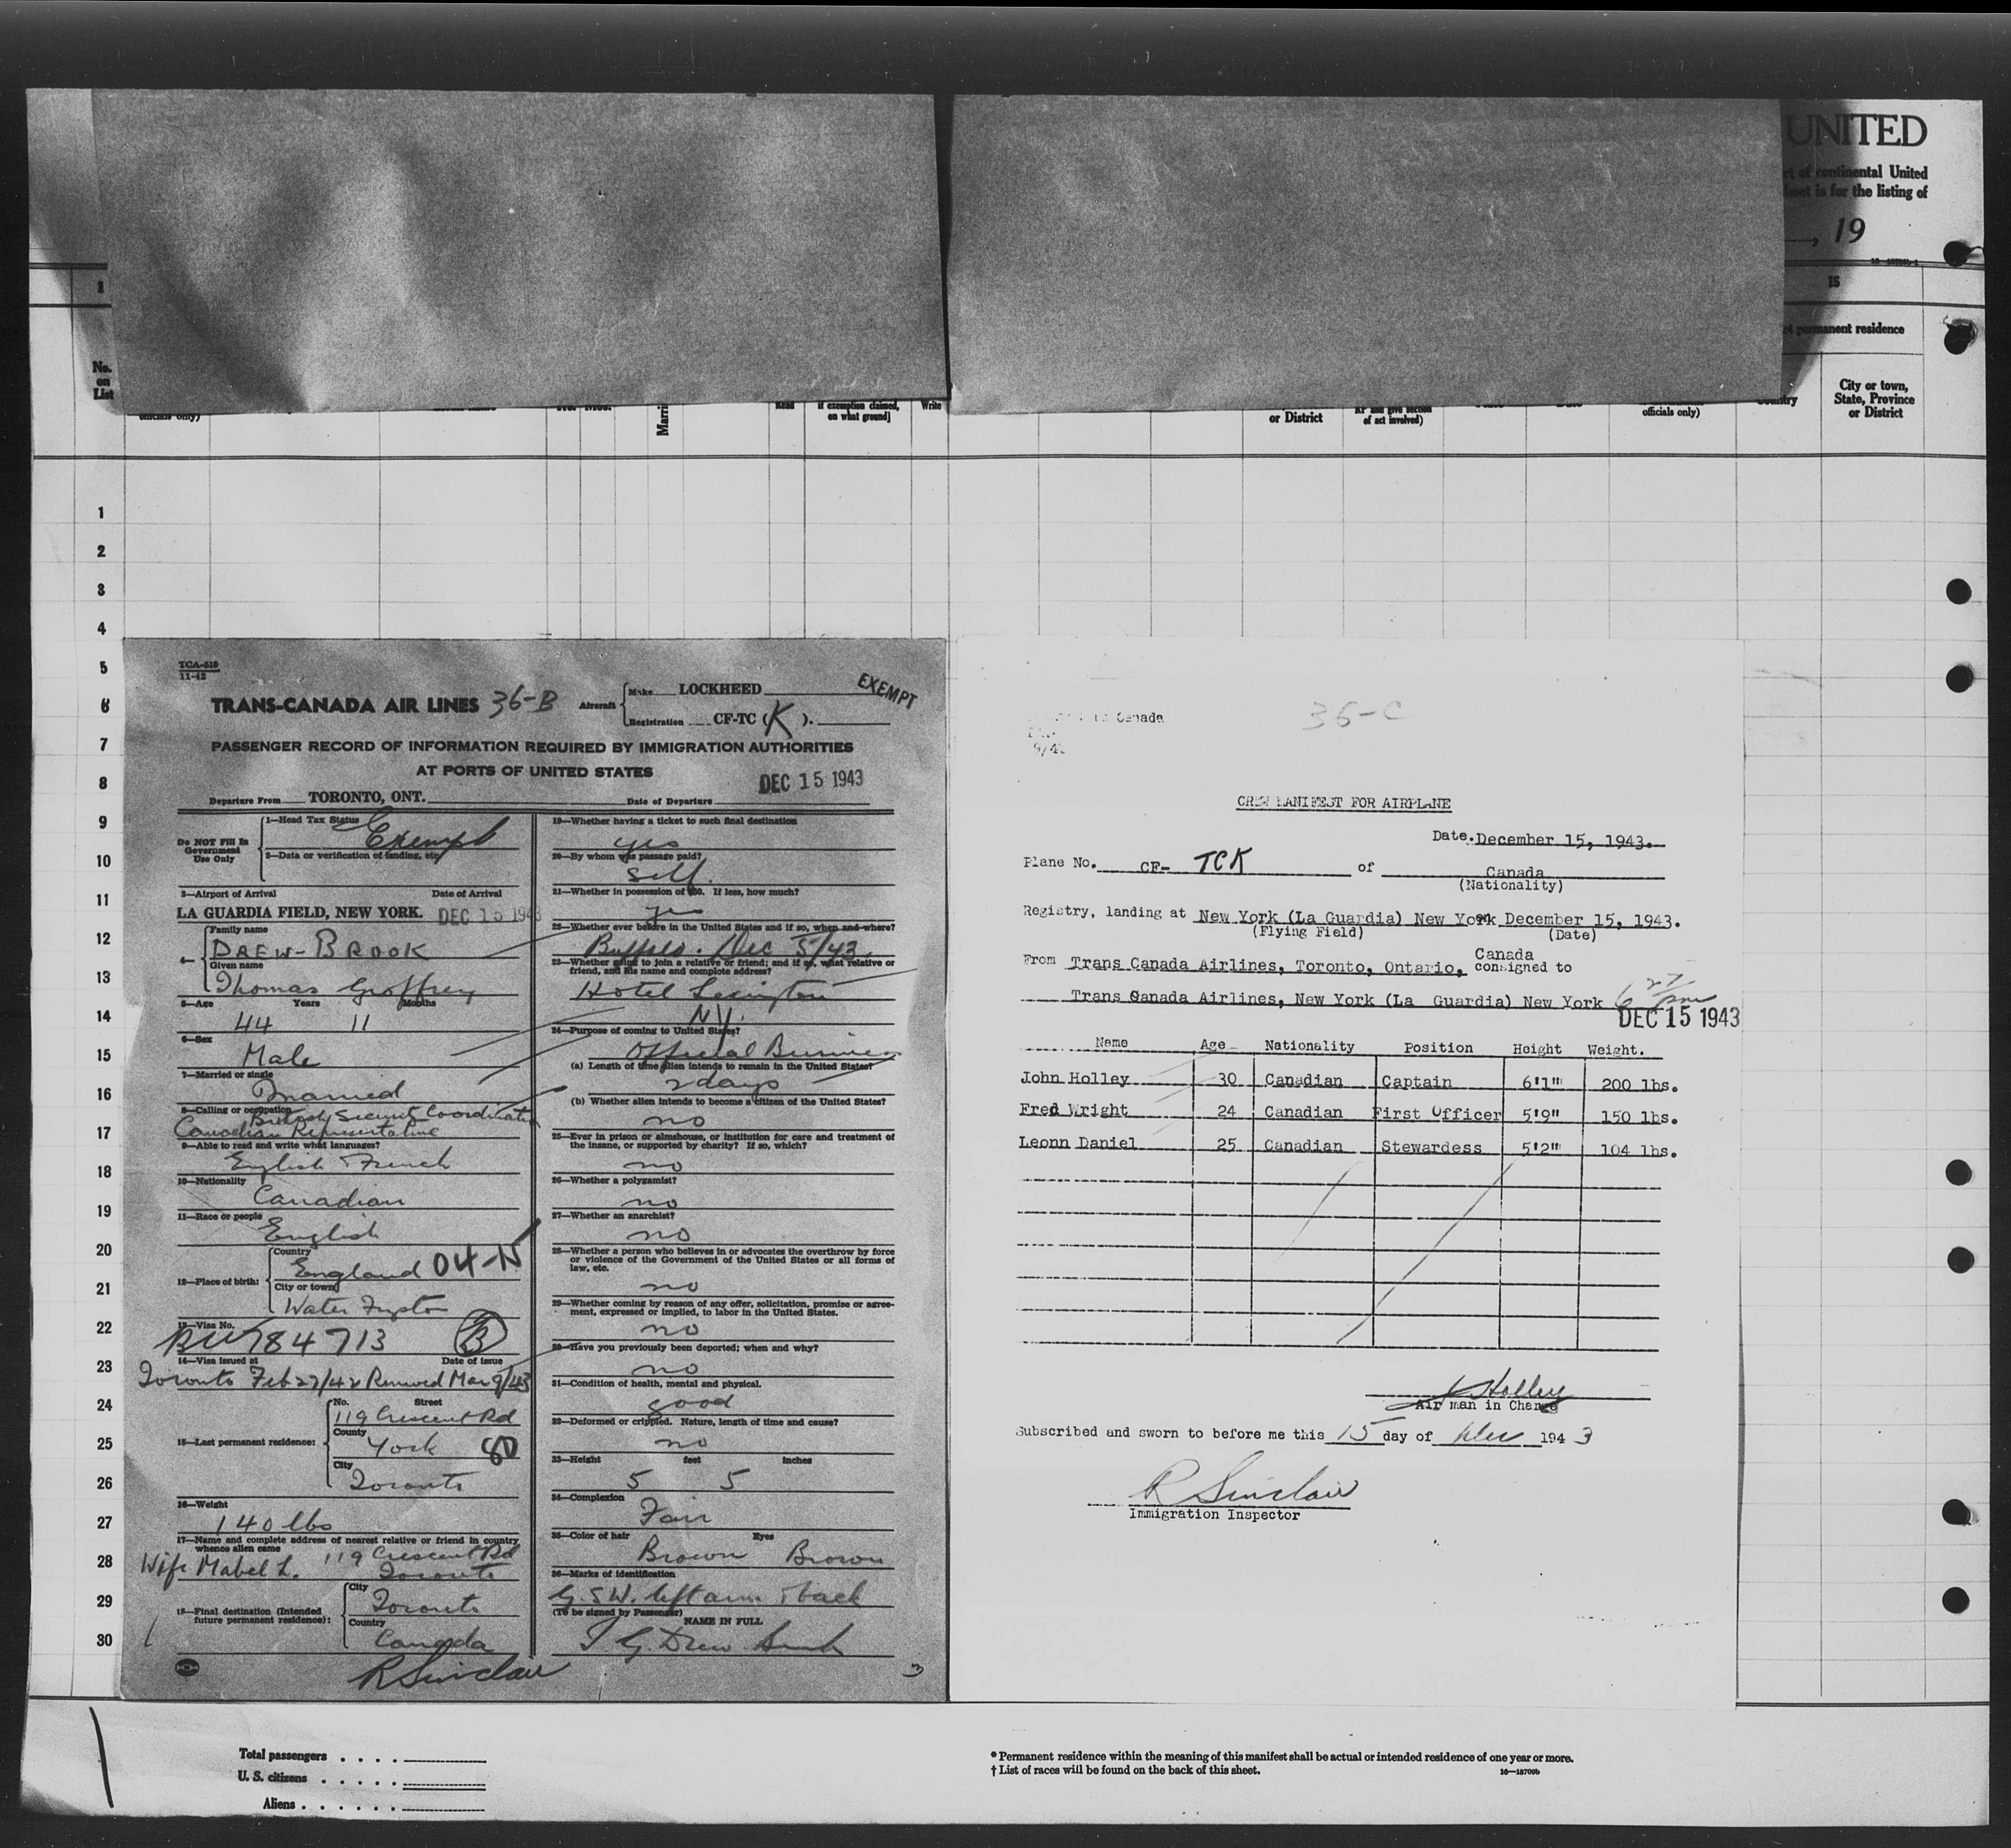 UNITED
of continental United
is for the listing of
, 19
1
15
permanent residence
No.
on
List
City or town,
State, Province
or District
officials only)
Read
if exemption claimed,
on what ground]
Write
or District
and give section
of act involved)
officials only)
1
2
3
4
5
6
7
8
9
10
11
12
13
14
15
16
17
18
19
20
21
22
23
24
25
26
27
28
29
30
TCA-810
11-42
TRANS-CANADA AIR LINES 36-B
Aircraft
Make LOCKHEED
Registration CF-TC (K).
EXEMPT
PASSENGER RECORD OF INFORMATION REQUIRED BY IMMIGRATION AUTHORITIES
AT PORTS OF UNITED STATES
DEC 15 1943
Departure From TORONTO, ONT. Date of Departure
Do NOT Fill In
Government
Use Only
1—Head Tax Status
Exempt
2—Data or verification of landing, etc.
3—Airport of Arrival Date of Arrival
LA GUARDIA FIELD, NEW YORK. DEC 15 1943
4—
Family name
DREW-BROOK
Given name
Thomas Groffrey
5—Age Years Months
44 11
6—Sex
Male
7—Married or single
Married
8—Calling or occupation
British Security Coordination
Canadian Representative
9—Able to read and write what languages?
English French
10—Nationality
Canadian
11—Race or people
English
12—Place of birth:
Country
England 04-N
City or town
Water Fryston
13—Visa No.
BU 784713 B
14—Visa issued at Date of issue
Toronto Feb 27/42 Renewed Mar 9/43
15—Last permanent residence:
No. Street
119 Crescent Rd
County
York 80
City
Toronto
16—Weight
140 lbs
17—Name and complete address of nearest relative or friend in country
whence alien came
Wife Mabel L. 119 Crescent Rd
Toronto
18—Final destination (Intended
future permanent residence):
City
Toronto
Country
Canada
R Sinclair
19—Whether having a ticket to such final destination
yes
20—By whom was passage paid?
self.
21—Whether in possession of $50. If less, how much?
yes
22—Whether ever before in the United States and if so, when and where?
Buffalo. Dec 5/43
23—Whether going to join a relative or friend; and if so, what relative or
friend, and his name and complete address?
Hotel Lexington
N.Y.
24—Purpose of coming to United States?
Official Business
(a) Length of time alien intends to remain in the United States?
2 days
(b) Whether alien intends to become a citizen of the United States?
no
25—Ever in prison or almshouse, or institution for care and treatment of
the insane, or supported by charity? If so, which?
no
26—Whether a polygamist?
no
27—Whether an anarchist?
no
28—Whether a person who believes in or advocates the overthrow by force
or violence of the Government of the United States or all forms of
law, etc.
no
29—Whether coming by reason of any offer, solicitation, promise or agree-
ment, expressed or implied, to labor in the United States.
no
30—Have you previously been deported; when and why?
no
31—Condition of health, mental and physical.
good
32—Deformed or crippled. Nature, length of time and cause?
no
33—Height feet inches
5 5
34—Complexion
Fair
35—Color of hair Eyes
Brown Brown
36—Marks of identification
G.S.W. left arm & back
(To be signed by Passenger)
NAME IN FULL
T G. Drew-Brook
3
Canada
9/42
36-C
CREW MANIFEST FOR AIRPLANE
Date. December 15, 1943.
Plane No. CF- TCK of Canada
(Nationality)
Registry, landing at New York (La Guardia) New York on December 15, 1943.
(Flying Field) (Date)
From Trans Canada Airlines, Toronto, Ontario, Canada consigned to
Trans Canada Airlines, New York (La Guardia) New York
6 27 pm
DEC 15 1943
Name Age Nationality Position Height Weight.
John Holley 30 Canadian Captain 6'1" 200 lbs.
Fred Wright 24 Canadian First Officer 5'9" 150 lbs.
Leonn Daniel 25 Canadian Stewardess 5'2" 104 lbs.
J Holley
Air man in Charge
Subscribed and sworn to before me this 15 day of Dec 1943
R Sinclair
Immigration Inspector
Total passengers . . . .
U. S. citizens . . . . .
Aliens . . . . . .
* Permanent residence within the meaning of this manifest shall be actual or intended residence of one year or more.
† List of races will be found on the back of this sheet.
16—18709b